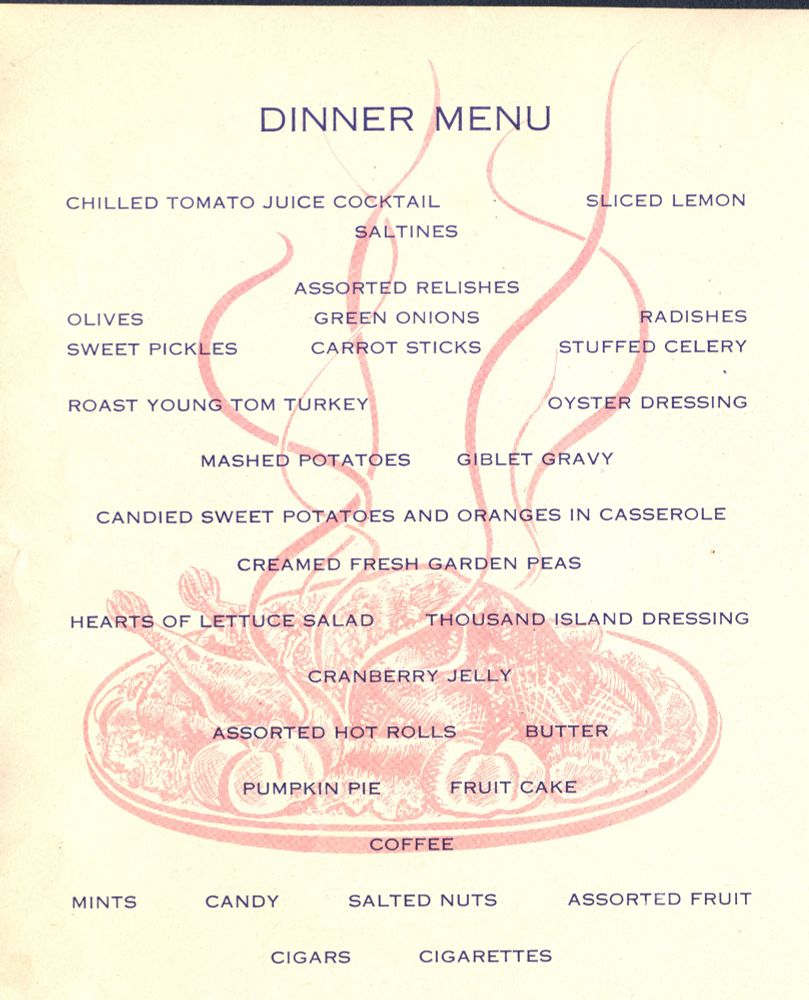 DINNER MENU
CHILLED TOMATO JUICE COCKTAIL SLICED LEMON
SALTINES
ASSORTED RELISHES
OLIVES GREEN ONIONS RADISHES
SWEET PICKLES CARROT STICKS STUFFED CELERY
ROAST YOUNG TOM TURKEY OYSTER DRESSING
MASHED POTATOES GIBLET GRAVY
CANDIED SWEET POTATOES AND ORANGES IN CASSEROLE
CREAMED FRESH GARDEN PEAS
HEARTS OF LETTUCE SALAD THOUSAND ISLAND DRESSING
CRANBERRY JELLY
ASSORTED HOT ROLLS BUTTER
PUMPKIN PIE FRUIT CAKE
COFFEE
MINTS CANDY SALTED NUTS ASSORTED FRUIT
CIGARS CIGARETTES